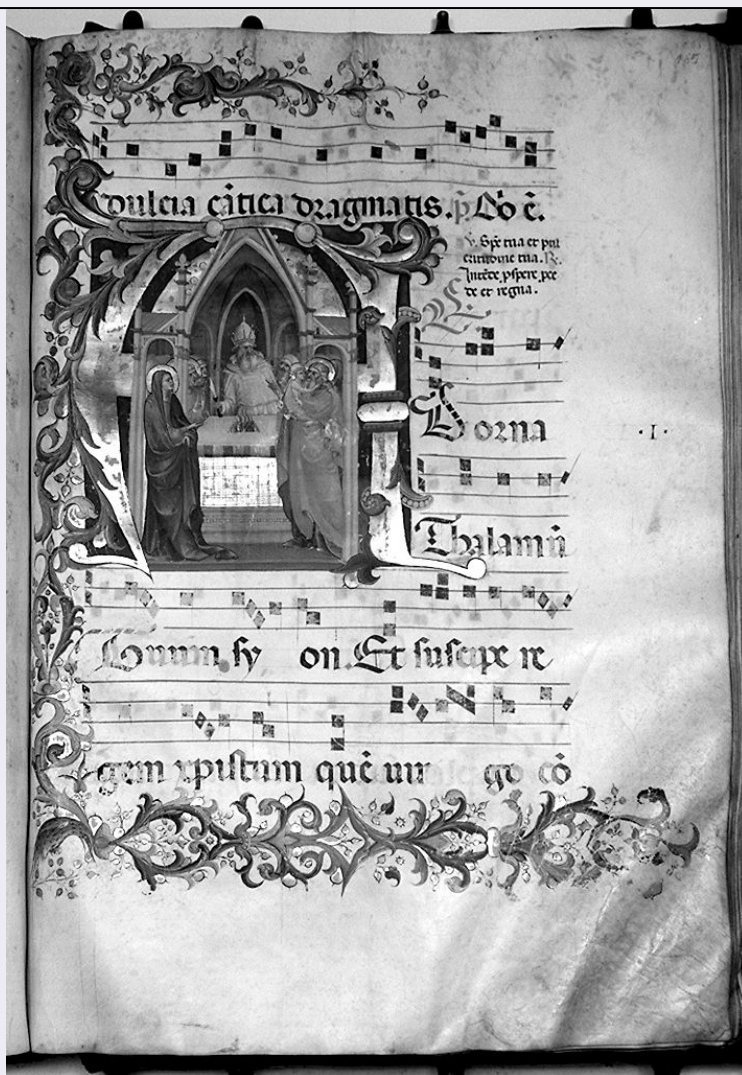 dulcia cãtica dragmatis. p̃ Qo ẽ.
℣. Spẽ tua et pul
critudine tua. ℟.
Intẽde pspere pce
de et regna.
A
Dorna
·I·
Thalamũ
tuum sy on. Et suscipe re
gem xpistum quẽ uir go cõ